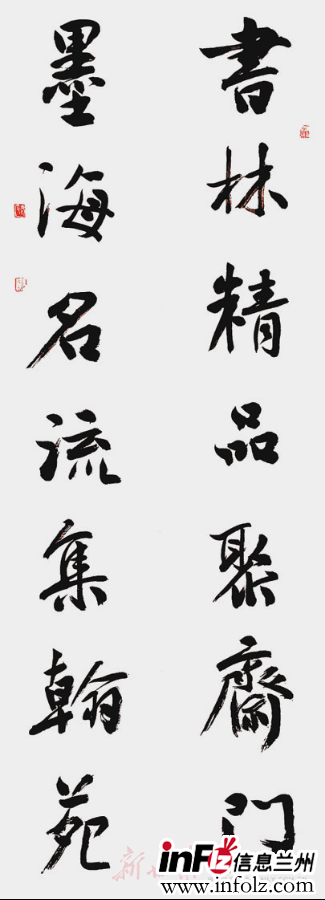 書林精品聚齋門
墨海名流集翰苑
inFLz信息兰州
www.infolz.com